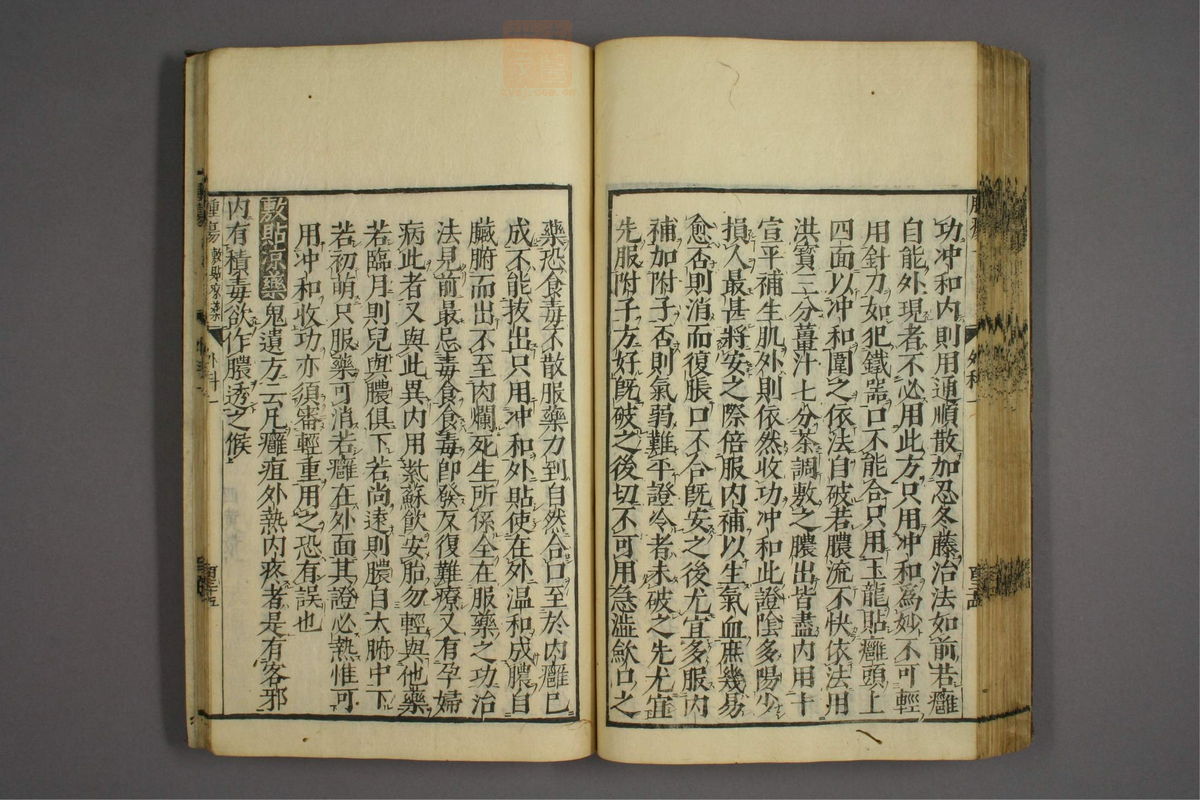 功冲和内則用通順散加忍冬藤治法如前若癰
自能外現者不必用此方只用冲和為妙不可輕
用針刀如犯鐵器口不能合只用玉龍貼癰頭上
四面以冲和圍之依法自破若膿流不快依法用
洪寳三分薑汁七分茶調敷之膿出皆盡内用十
宣平補生肌外則依然收功冲和此證陰多陽少
損人最甚將安之際倍服内補以生氣血庶幾易
愈否則消而復脹口不合旣安之後尤宜多服内
補加附子否則氣弱難平證冷者未破之先尤宜
先服附子方好旣破之後切不可用急澁歛口之
藥恐食毒不散服藥力到自然合口至於内癰已
成不能拔出只用冲和外貼使在外温和成膿自
臟腑而出不至肉爛死生所係全在服藥之功治
法見前最忌毒食食毒即發反復難療又有孕婦
病此者又與此異内用紫蘇飲安胎勿輕與他藥
若臨月則兒與膿俱下若尚遠則膿自大腑中下
若初萌只服藥可消若癰在外面其證必熱惟可
用冲和收功亦須審輕重用之恐有誤也
敷貼凉藥 鬼遺方云凡癰疽外熱内疼者是有客邪
内有積毒欲作膿透之候
腫瘍 敷貼凉藥 外科一